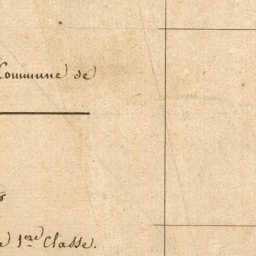 Commune de
1ere Classe.